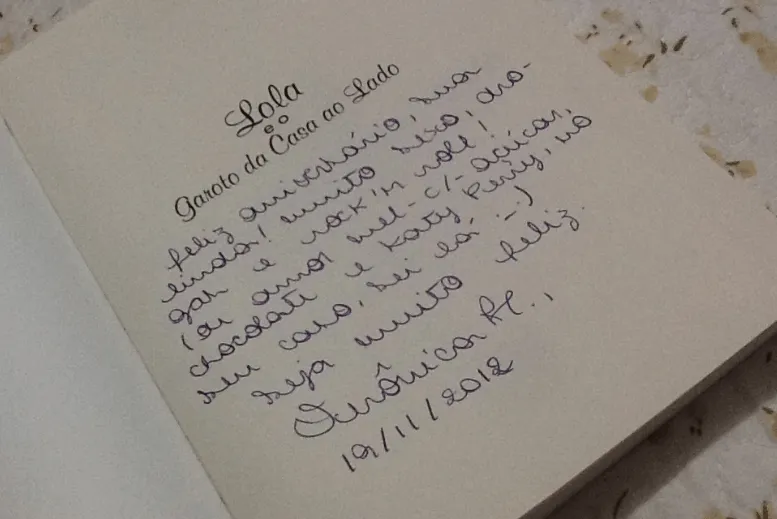 Lola
e o
Garoto da Casa ao Lado
feliz aniversário, sua
linda! muito sexo, dro-
gas e rock'n roll!
(ou amor mel-c/-açúcar,
chocolate e Katy Perry, no
seu caso, sei lá :-)
seja muito feliz.
Verônica H.,
19/11/2012